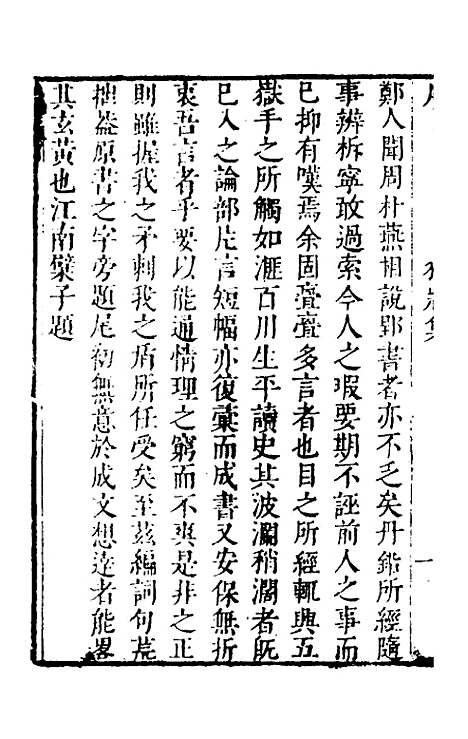 鄭人聞周朴燕相說郢書者亦不乏矣丹鉛所經隨
事辨析寧敢過索今人之瑕要期不誣前人之事而
已抑有嘆焉余固亹亹多言者也目之所經輒與五
嶽手之所觸如滙百川生平讀史其波瀾稍濶者旣
已入之論部片言短幅亦復彙而成書又安保無折
衷吾言者乎要以能通情理之窮而不爽是非之正
則雖握我之矛刺我之盾所任受矣至茲編詞句荒
拙葢原書之字旁題尾初無意於成文想達者能畧
其玄黃也江南檗子題